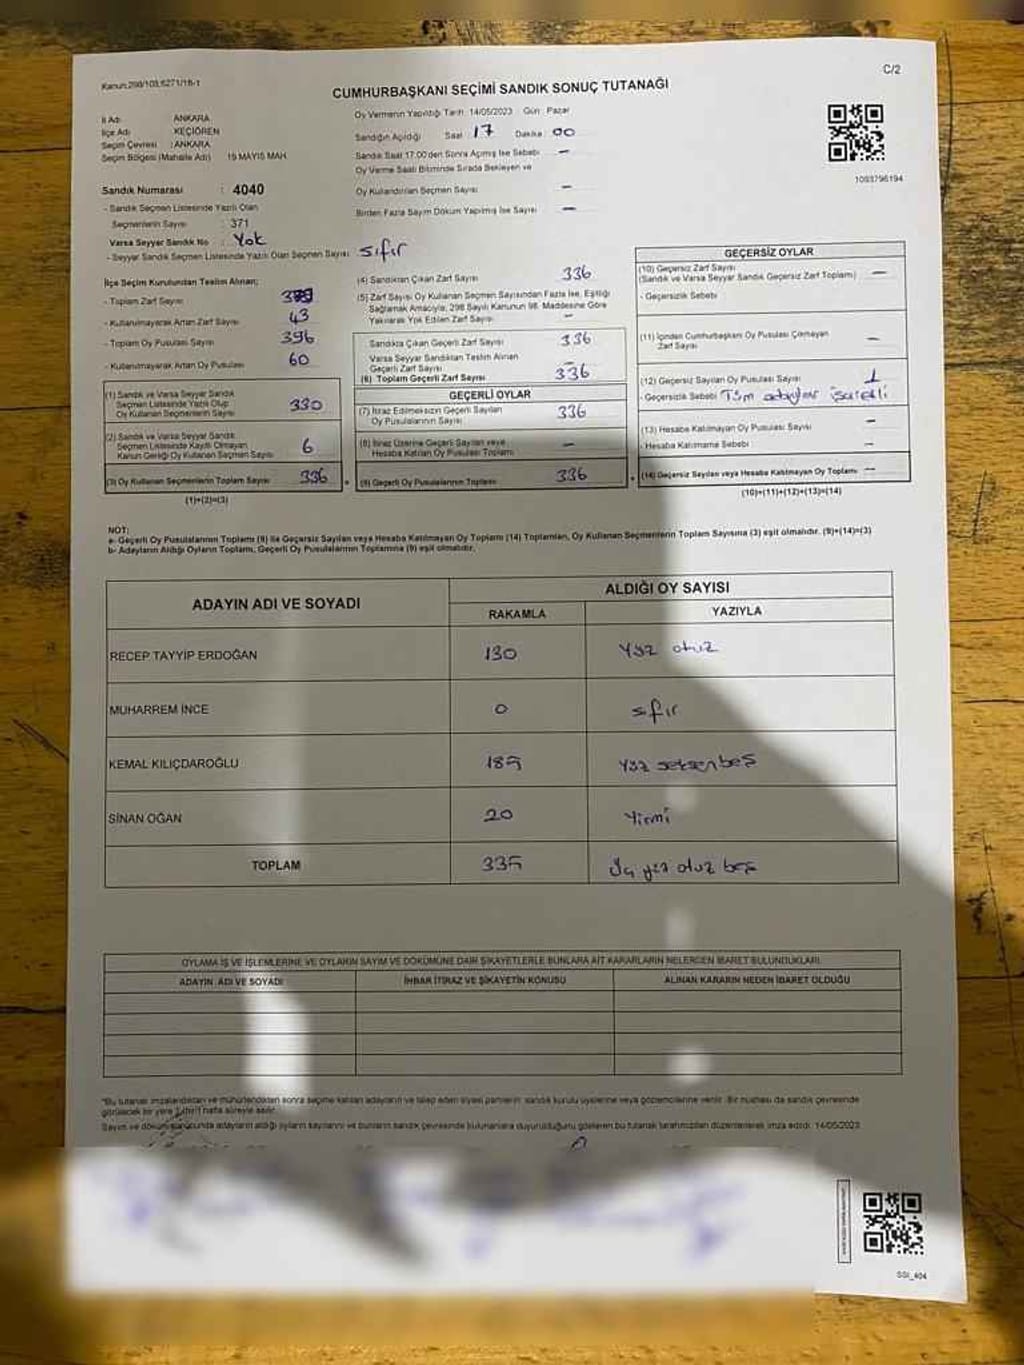 Kanun:298/103,6271/18-1
C/2
CUMHURBAŞKANI SEÇİMİ SANDIK SONUÇ TUTANAĞI
İl Adı : ANKARA
İlçe Adı : KEÇİÖREN
Seçim Çevresi : ANKARA
Seçim Bölgesi (Mahalle Adı) 19 MAYIS MAH.
Sandık Numarası : 4040
- Sandık Seçmen Listesinde Yazılı Olan
Seçmenlerin Sayısı : 371
Varsa Seyyar Sandık No : Yok
- Seyyar Sandık Seçmen Listesinde Yazılı Olan Seçmen Sayısı: sıfır
Oy Vermenin Yapıldığı Tarih: 14/05/2023 Gün: Pazar
Sandığın Açıldığı Saat 17 Dakika: 00
Sandık Saat 17:00'den Sonra Açılmış İse Sebebi –
Oy Verme Saati Bitiminde Sırada Bekleyen ve
Oy Kullandırılan Seçmen Sayısı –
Birden Fazla Sayım Döküm Yapılmış İse Sayısı –
1093796194
İlçe Seçim Kurulundan Teslim Alınan;
- Toplam Zarf Sayısı
- Kullanılmayarak Artan Zarf Sayısı 43
- Toplam Oy Pusulası Sayısı 396
- Kullanılmayarak Artan Oy Pusulası 60
(1) Sandık ve Varsa Seyyar Sandık
Seçmen Listesinde Yazılı Olup
Oy Kullanan Seçmenlerin Sayısı 330
(2) Sandık ve Varsa Seyyar Sandık
Seçmen Listesinde Kayıtlı Olmayan
Kanun Gereği Oy Kullanan Seçmen Sayısı 6
(3) Oy Kullanan Seçmenlerin Toplam Sayısı 336
(1)+(2)=(3)
(4) Sandıktan Çıkan Zarf Sayısı 336
(5) Zarf Sayısı Oy Kullanan Seçmen Sayısından Fazla İse, Eşitliği
Sağlamak Amacıyla, 298 Sayılı Kanunun 98. Maddesine Göre
Yakılarak Yok Edilen Zarf Sayısı –
Sandıkta Çıkan Geçerli Zarf Sayısı 336
Varsa Seyyar Sandıktan Teslim Alınan
Geçerli Zarf Sayısı –
(6) Toplam Geçerli Zarf Sayısı 336
GEÇERLİ OYLAR
(7) İtiraz Edilmeksizin Geçerli Sayılan
Oy Pusulalarının Sayısı 336
(8) İtiraz Üzerine Geçerli Sayılan veya
Hesaba Katılan Oy Pusulası Toplamı –
(9) Geçerli Oy Pusulalarının Toplamı 336
GEÇERSİZ OYLAR
(10) Geçersiz Zarf Sayısı
(Sandık ve Varsa Seyyar Sandık Geçersiz Zarf Toplamı) –
- Geçersizlik Sebebi
(11) İçinden Cumhurbaşkanı Oy Pusulası Çıkmayan
Zarf Sayısı –
(12) Geçersiz Sayılan Oy Pusulası Sayısı 1
- Geçersizlik Sebebi Tüm adaylar işaretli
(13) Hesaba Katılmayan Oy Pusulası Sayısı –
- Hesaba Katılmama Sebebi –
(14) Geçersiz Sayılan veya Hesaba Katılmayan Oy Toplamı –
(10)+(11)+(12)+(13)=(14)
NOT:
a- Geçerli Oy Pusulalarının Toplamı (9) ile Geçersiz Sayılan veya Hesaba Katılmayan Oy Toplamı (14) Toplamları, Oy Kullanan Seçmenlerin Toplam Sayısına (3) eşit olmalıdır. (9)+(14)=(3)
b- Adayların Aldığı Oyların Toplamı, Geçerli Oy Pusulalarının Toplamına (9) eşit olmalıdır.
ADAYIN ADI VE SOYADI
ALDIĞI OY SAYISI
RAKAMLA YAZIYLA
RECEP TAYYİP ERDOĞAN 130 Yüz otuz
MUHARREM İNCE 0 sıfır
KEMAL KILIÇDAROĞLU 185 Yüz seksen beş
SİNAN OĞAN 20 Yirmi
TOPLAM 335 Üç yüz otuz beş
OYLAMA İŞ VE İŞLEMLERİNE VE OYLARIN SAYIM VE DÖKÜMÜNE DAİR ŞİKAYETLERLE BUNLARA AİT KARARLARIN NELERDEN İBARET BULUNDUKLARI
ADAYIN ADI VE SOYADI İHBAR İTİRAZ VE ŞİKAYETİN KONUSU ALINAN KARARIN NEDEN İBARET OLDUĞU
*Bu tutanak imzalandıktan ve mühürlendikten sonra seçime katılan adayların ve talep eden siyasi partilerin sandık kurulu üyelerine veya gözlemcilerine verilir. Bir nüshası da sandık çevresinde
görülecek bir yere 1 (bir) hafta süreyle asılır.
Sayım ve döküm sonucunda adayların aldığı oyların sayılarını ve bunların sandık çevresinde bulunanlara duyurulduğunu gösteren bu tutanak tarafımızdan düzenlenerek imza edildi. 14/05/2023
SSI_404